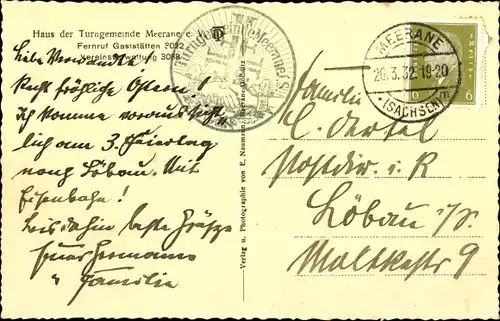 Haus der Turngemeinde Meerane e. V.
Fernruf Gaststätten 3022
Vereinsverwaltung 3089
Liebe Verwandte!
Recht fröhliche Ostern!
Ich komme voraussicht
lich am 3. Feiertag
nach Löbau. Mit
Eisenbahn!
Bis dahin beste Grüße
Euer Hermann
u Familie
Verlag u. Photographie von E. Naumann,
MEERANE
26.3.32.19-20
(SACHSEN)
6
Familie
C. Oertel
Postdir. i. R
Löbau i/S.
Moltkestr 9